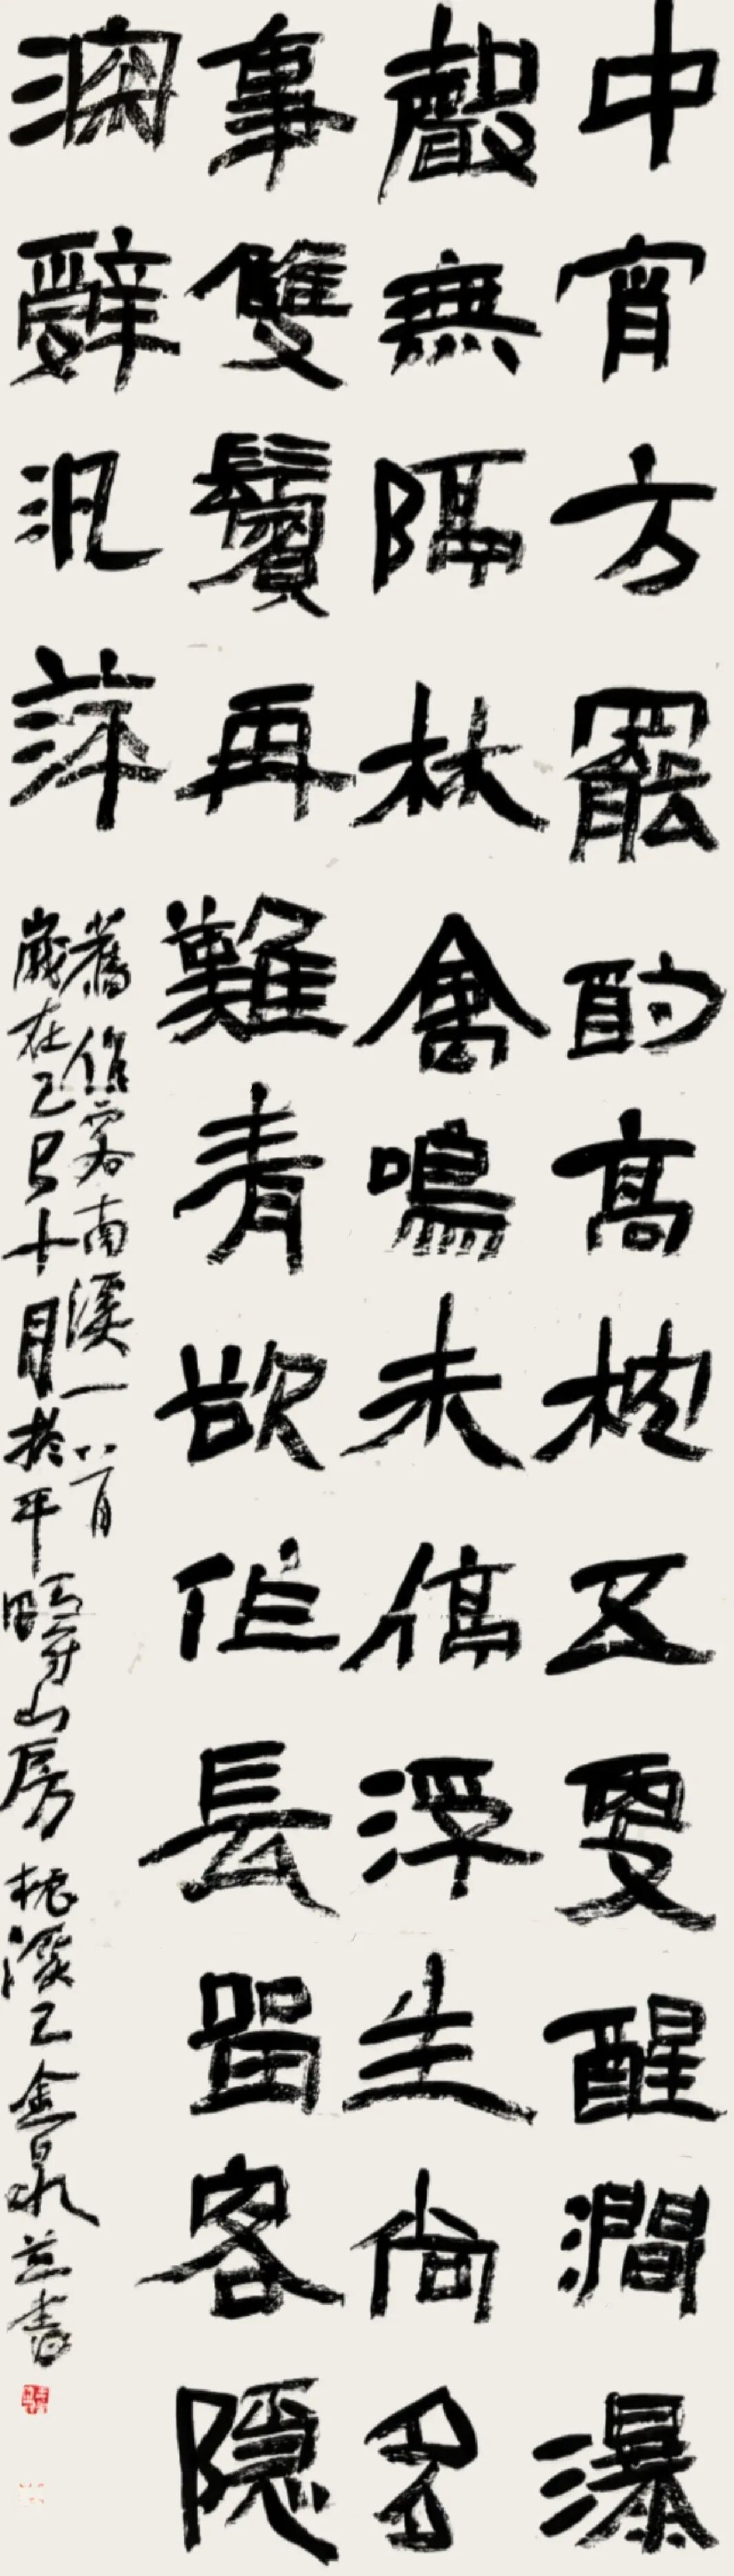 中宵方罷酌高枕五更醒澗瀑
聲無隔林禽鳴未停浮生尚多
事雙鬢再難青欲作長留客隱
淵辭汎萍
舊作南溪一首
歲在乙巳十月於平疇山房溪王金泉並書